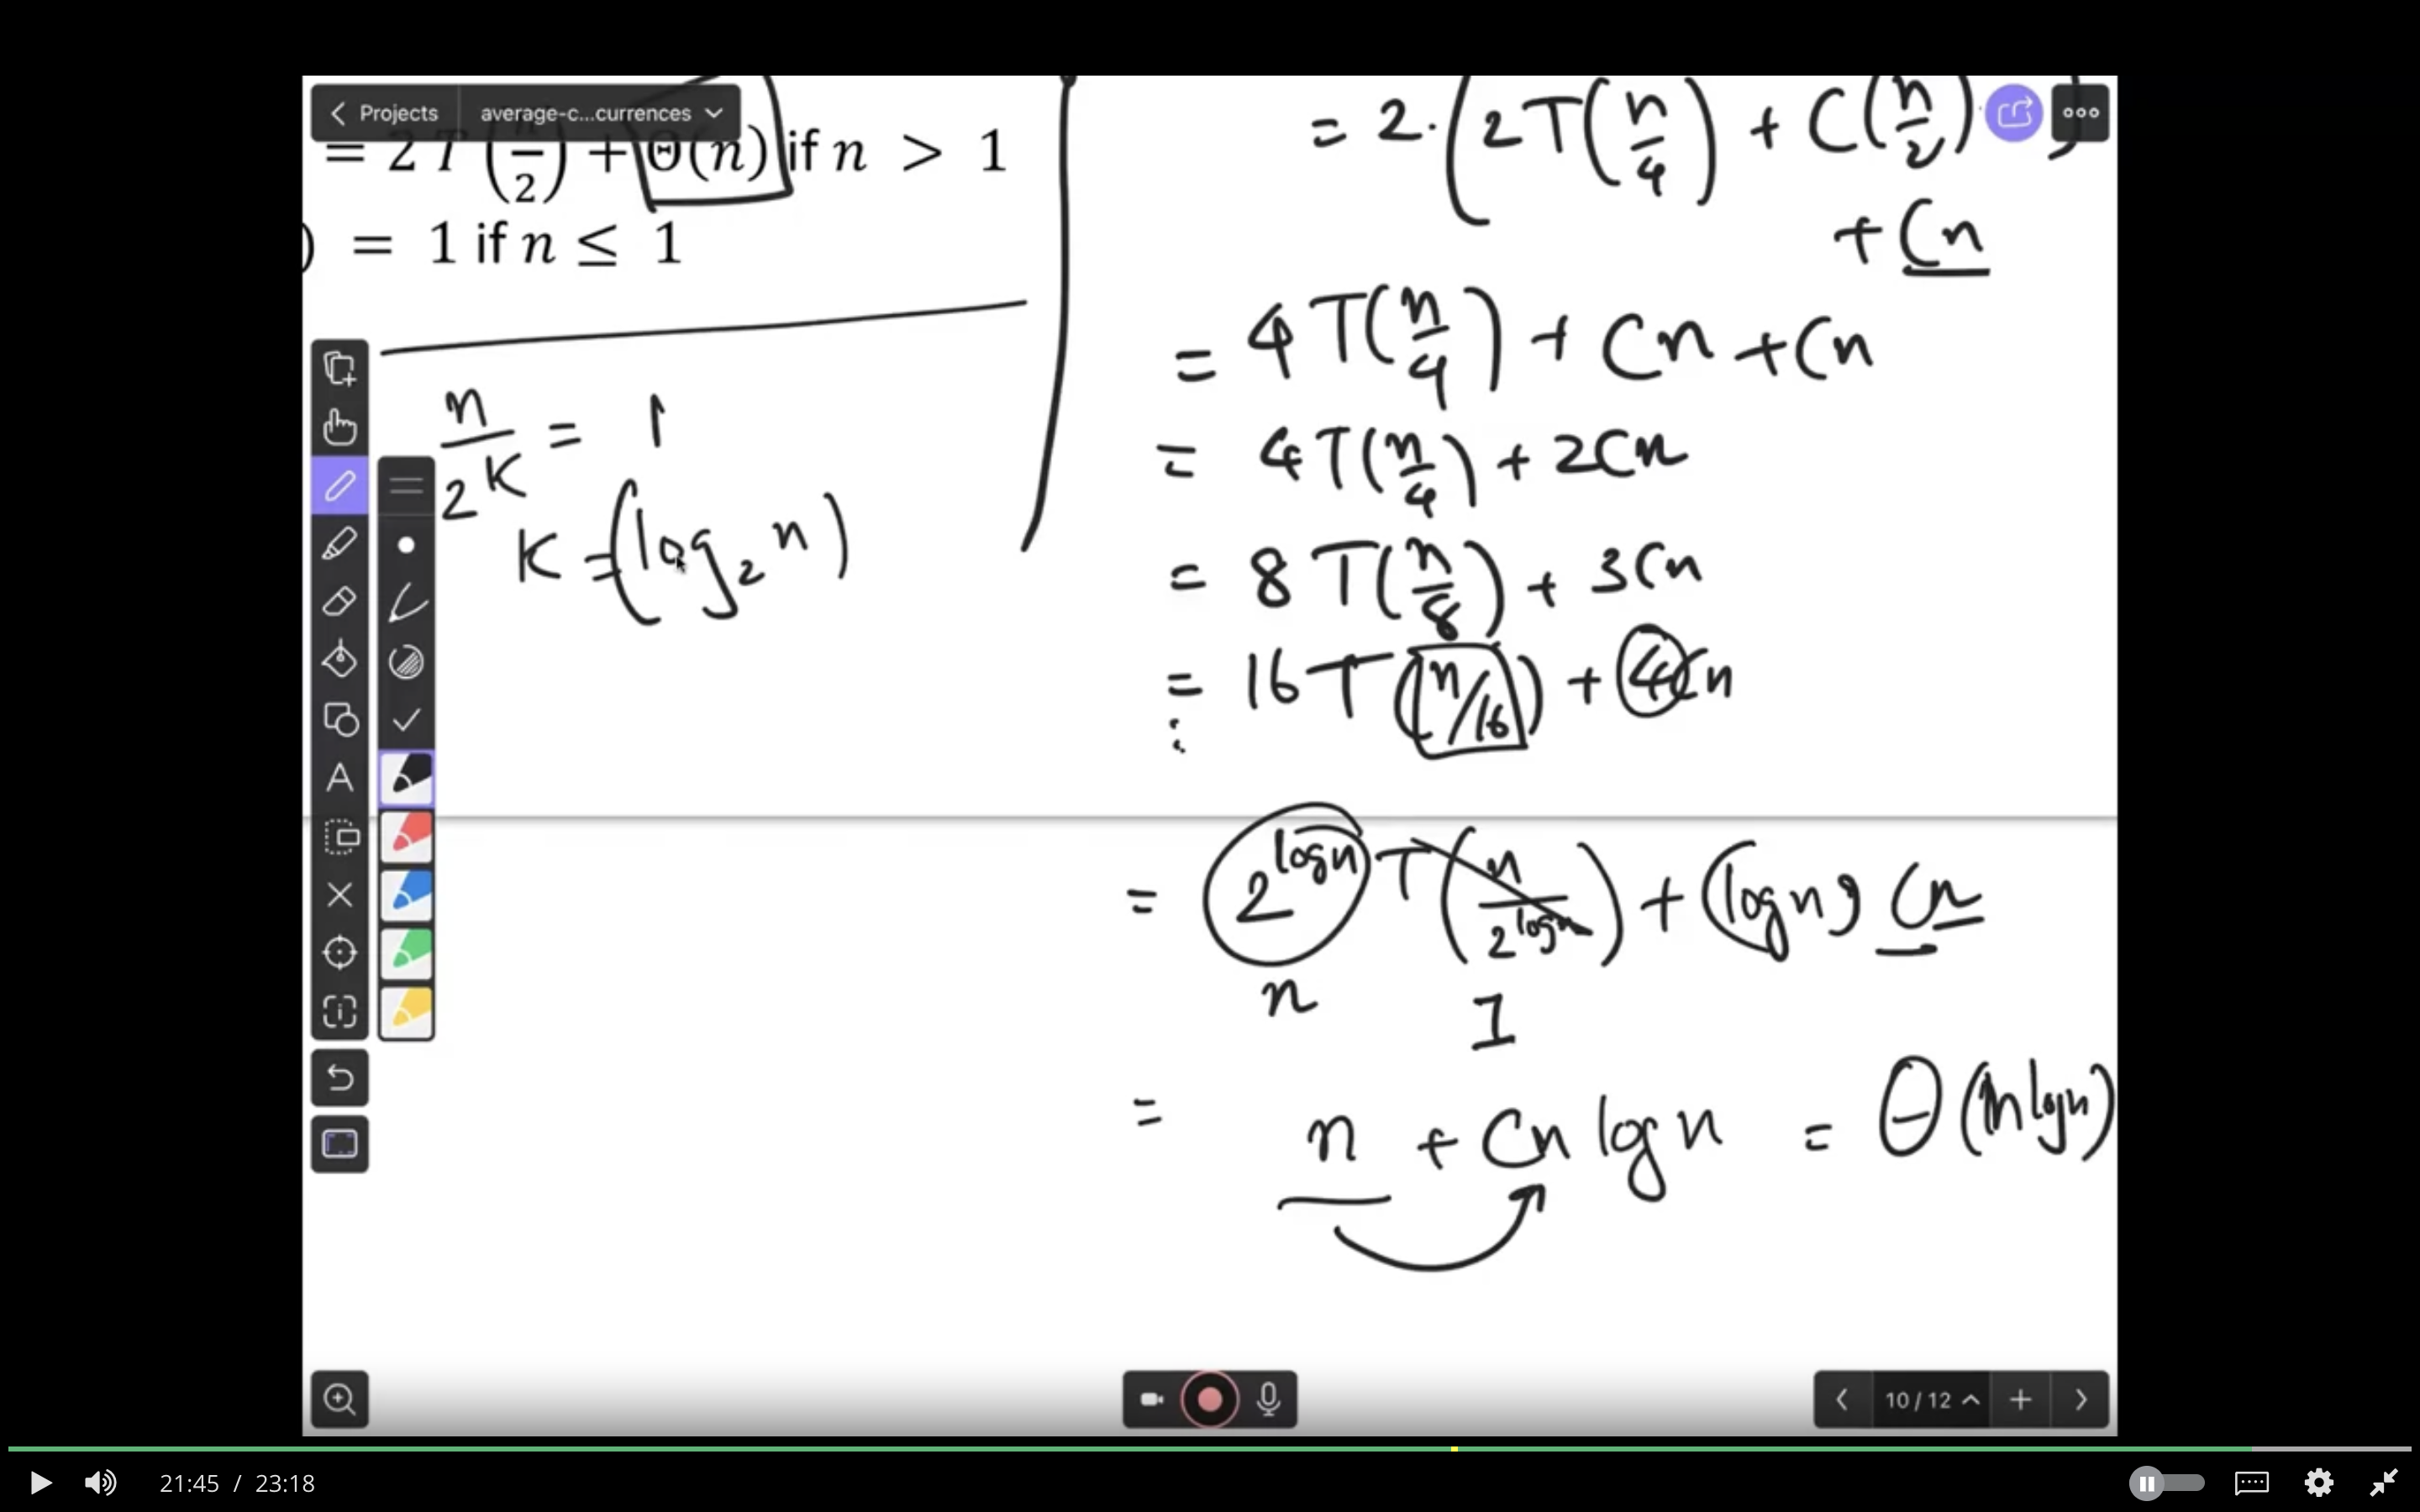 Projects
average-c...currences
= 2 T (n/2) + Θ(n) if n > 1
) = 1 if n ≤ 1
n/2^K = 1
K = (log₂ n)
= 2·(2T(n/4) + C(n/2))
+ Cn
= 4T(n/4) + Cn + Cn
= 4T(n/4) + 2Cn
= 8T(n/8) + 3Cn
= 16T(n/16) + 4Cn
⋮
= 2^logn T(n/2^logn) + (logn) Cn
n 1
= n + Cn logn = Θ(nlogn)
A
10 / 12
21:45 / 23:18